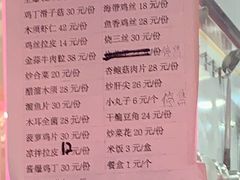 鸡丁滑子菇 30 元/份
木须虾仁 42 元/份
鸡丝拉皮 14 元/份
金蒜牛肉粒 38 元/份
炒合菜 20 元/份
醋溜木须 28 元/份
溜鱼片 30 元/份
木耳全菌 28 元/份
菠萝鸡片 30 元/份
凉拌拉皮 12 元/份
酱爆鸡丁 30 元/份
海带鸡丝 18 元/份
鱼香鸡丝 28 元/份
烧三丝 30 元/份
杏鲍菇肉片 28 元/份
炒肝尖 26 元/份
小丸子 6 元/个
干煸豆角 24 元/份
炒菜花 20 元/份
米饭 3 元/盒
餐盒 1 元/个